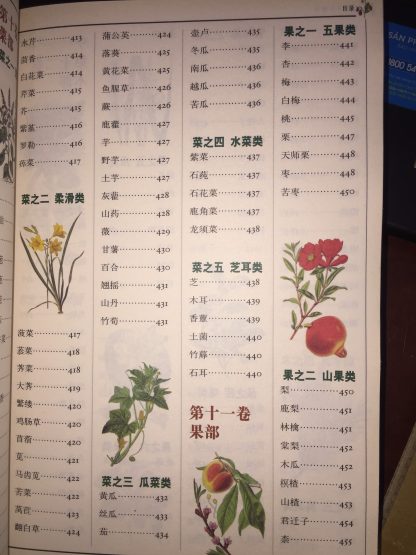 目录
水芹………413
茴香………414
白花菜………414
芹菜………415
芥………415
紫堇………416
罗勒………416
菘菜………417
菜之二 柔滑类
菠菜………417
蕹菜………418
荠菜………418
大荠………419
繁缕………420
鸡肠草………420
苜蓿………420
苋………421
马齿苋………422
苦菜………422
莴苣………423
翻白草………424
蒲公英………424
落葵………425
黄花菜………425
鱼腥草………426
蕨………426
鹿藿………427
芋………427
野芋………427
土芋………427
灰藋………428
山药………428
薇………429
甘薯………430
百合………430
翘摇………431
山丹………431
竹笋………431
菜之三 瓜菜类
黄瓜………432
丝瓜………433
茄………434
壶卢………435
冬瓜………435
南瓜………436
越瓜………436
苦瓜………436
菜之四 水菜类
紫菜………437
石莼………437
石花菜………437
鹿角菜………437
龙须菜………438
菜之五 芝耳类
芝………438
木耳………439
香蕈………439
土菌………440
竹蓐………440
石耳………440
第十一卷
果部
果之一 五果类
李………441
杏………442
梅………443
白梅………444
桃………445
栗………447
天师栗………448
枣………448
苦枣………450
果之二 山果类
梨………450
鹿梨………451
林檎………451
棠梨………452
木瓜………452
榠楂………453
山楂………453
君迁子………454
柰………455
SẢN PH
1800 54